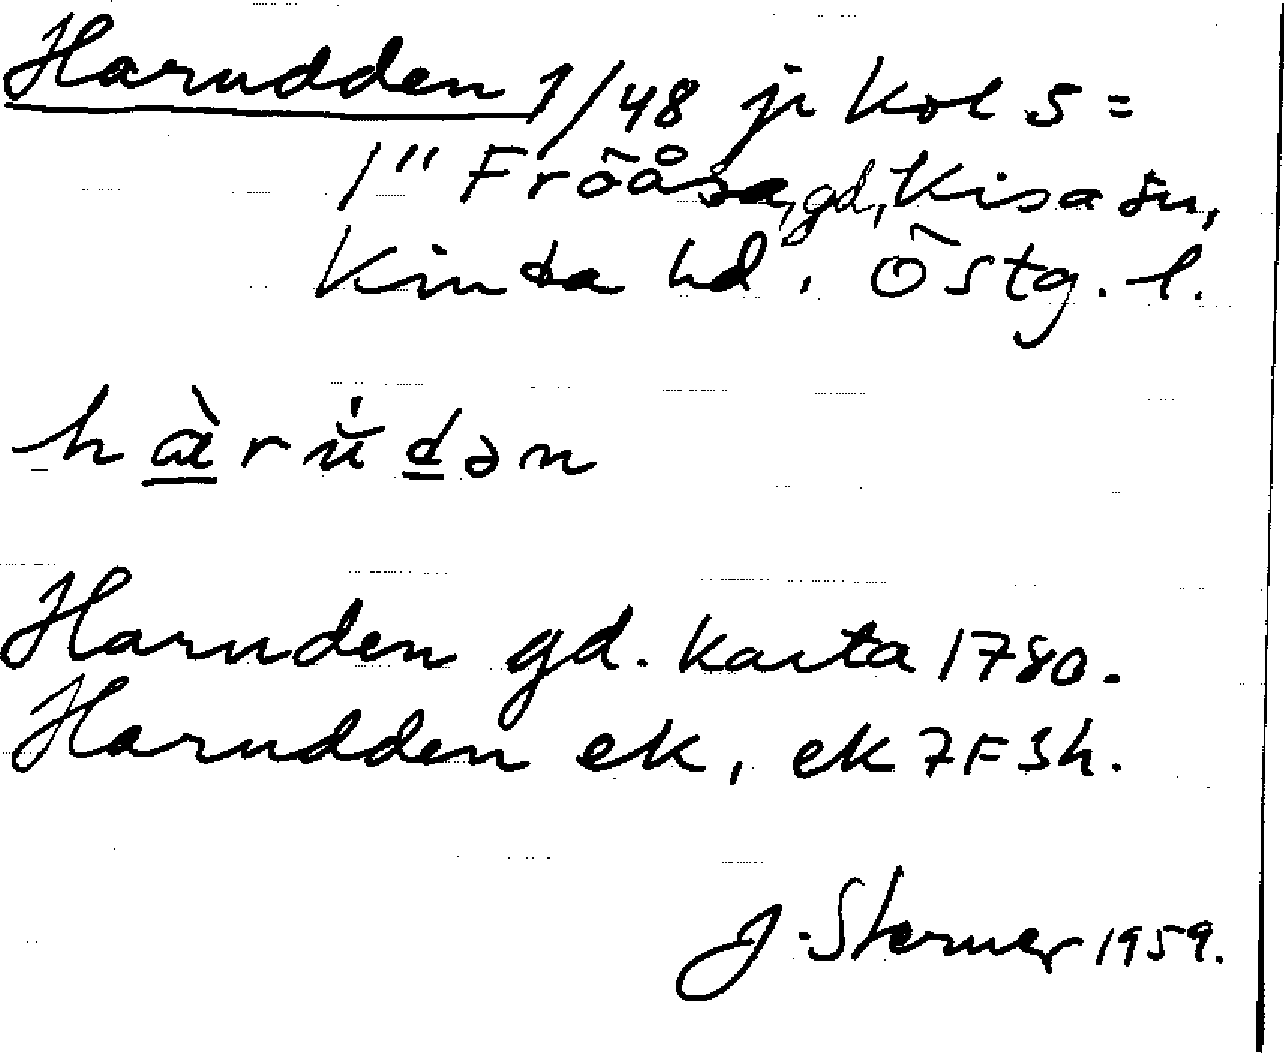 Harudden 1/48 ji Kol S =
1" Fröåsa, gd, Kisa sn,
Kinda hd. Östg. l.
hàrùdən
Haruden gd. Karta 1780.
Harudden ek, ek 7F3h.
J. Sterner 1959.